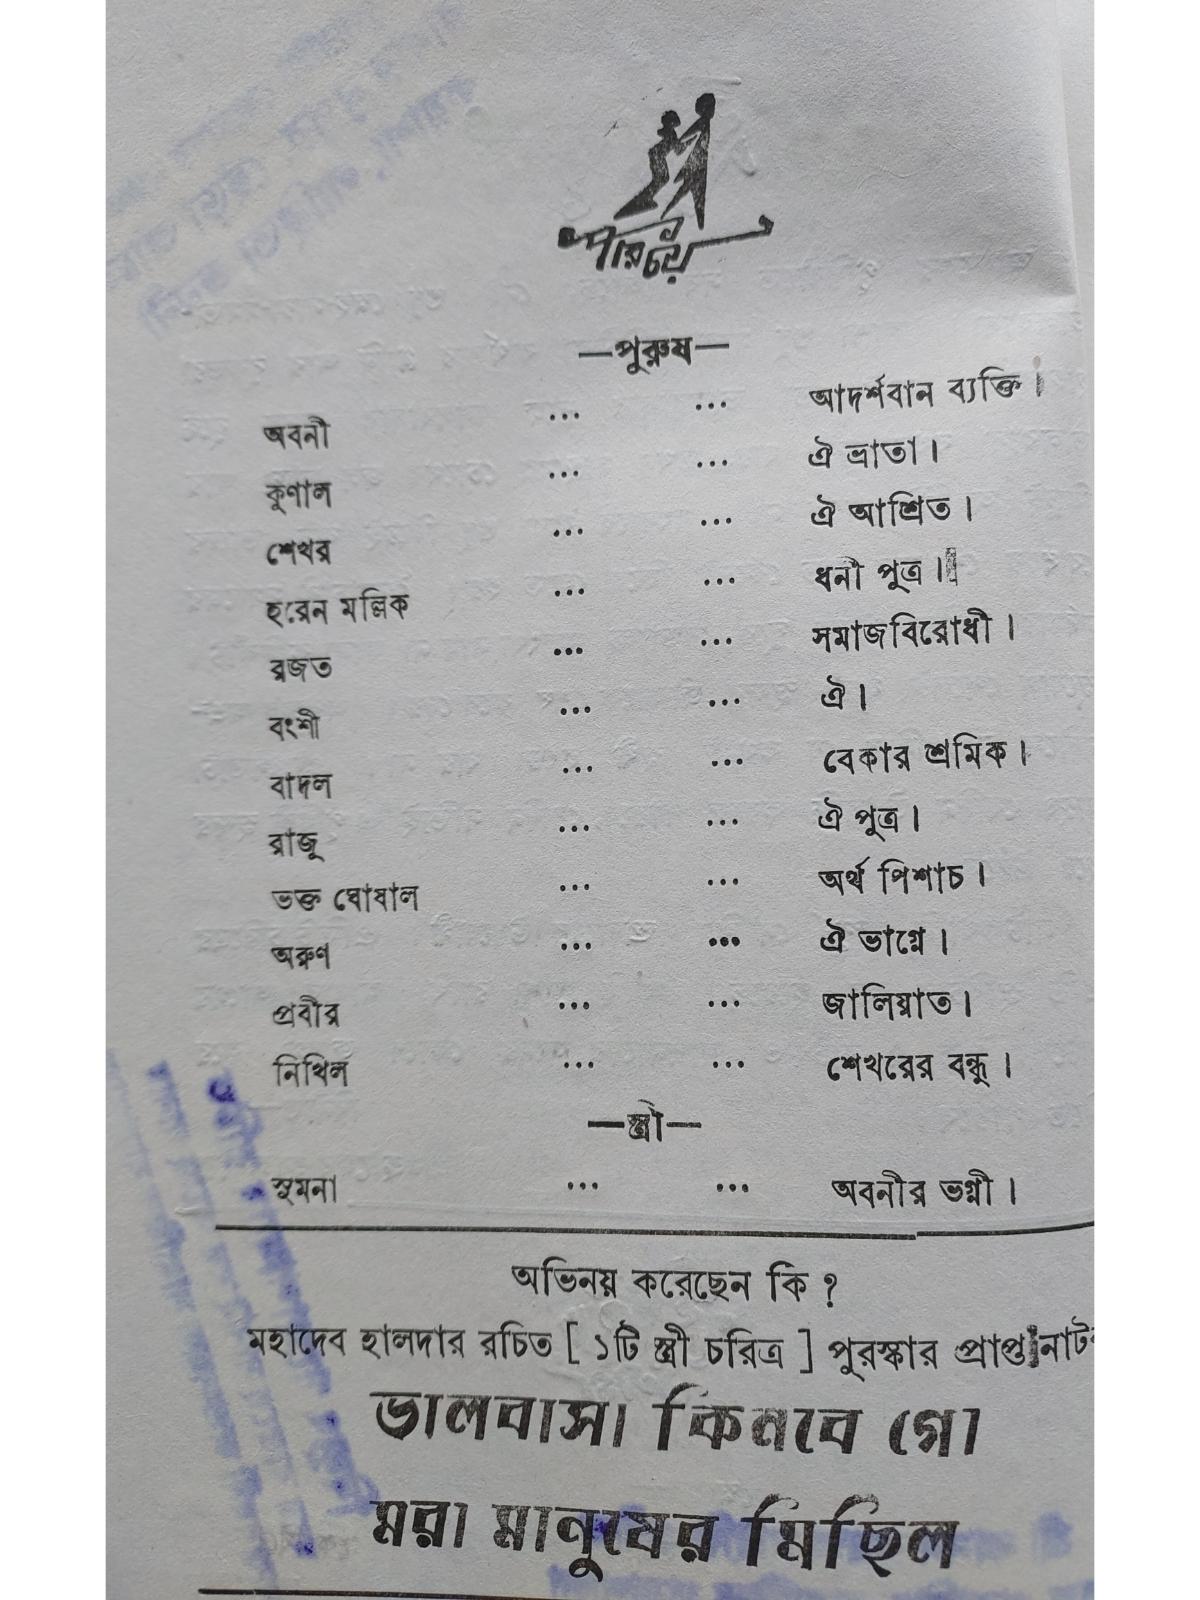 পরিচয়
—পুরুষ—
অবনী ... ... আদর্শবান ব্যক্তি।
কুণাল ... ... ঐ ভ্রাতা।
শেখর ... ... ঐ আশ্রিত।
হরেন মল্লিক ... ... ধনী পুত্র।
রজত ... ... সমাজবিরোধী।
বংশী ... ... ঐ।
বাদল ... ... বেকার শ্রমিক।
রাজু ... ... ঐ পুত্র।
ভক্ত ঘোষাল ... ... অর্থ পিশাচ।
অরুণ ... ... ঐ ভাগ্নে।
প্রবীর ... ... জালিয়াত।
নিখিল ... ... শেখরের বন্ধু।
—স্ত্রী—
সুমনা ... ... অবনীর ভগ্নী।
অভিনয় করেছেন কি ?
মহাদেব হালদার রচিত [ ১টি স্ত্রী চরিত্র ] পুরস্কার প্রাপ্ত
ভালবাসা কিনবে গো
মরা মানুষের মিছিল